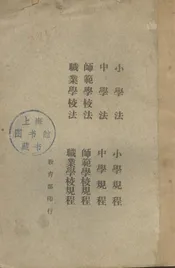 小學法　小學規程
中學法　中學規程
師範學校法　師範學校規程
職業學校法　職業學校規程
教育部印行
上海
图书馆
藏书